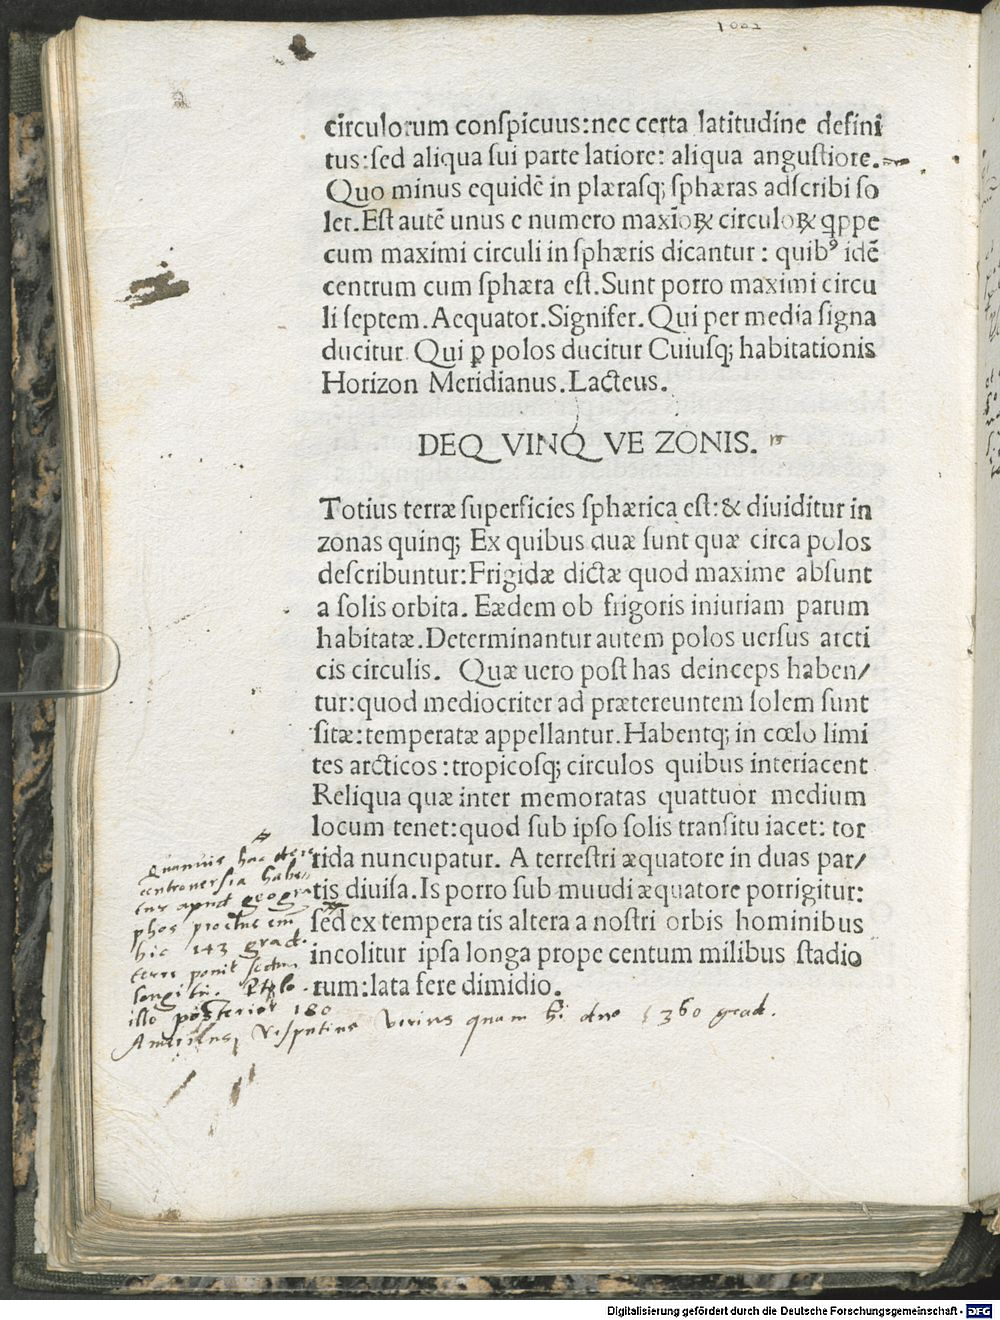 1002
circulorum conſpicuus:nec certa latitudine defini
tus:ſed aliqua ſui parte latiore: aliqua anguſtiore.
Quo minus equidẽ in plæraſqꝫ ſphæras adſcribi ſo
let.Eſt autẽ unus e numero maxĩoꝝ circuloꝝ ꝗppe
cum maximi circuli in ſphæris dicantur : quibꝰ idẽ
centrum cum ſphæra eſt.Sunt porro maximi circu
li ſeptem.Aequator.Signifer.Qui per media ſigna
ducitur Qui ꝑ polos ducitur Cuiuſqꝫ habitationis
Horizon Meridianus.Lacteus.
DEQ VINQ VE ZONIS.
Totius terræ ſuperficies ſphærica eſt:& diuiditur in
zonas quinqꝫ Ex quibus duæ ſunt quæ circa polos
deſcribuntur:Frigidæ dictæ quod maxime abſunt
a ſolis orbita. Eædem ob frigoris iniuriam parum
habitatæ.Determinantur autem polos uerſus arcti
cis circulis. Quæ uero poſt has deinceps haben/
tur:quod mediocriter ad prætereuntem ſolem ſunt
ſitæ:temperatæ appellantur.Habentqꝫ in cœlo limi
tes arcticos:tropicoſqꝫ circulos quibus interiacent
Reliqua quæ inter memoratas quattuor medium
locum tenet:quod ſub ipſo ſolis tranſitu iacet: tor
rida nuncupatur. A terreſtri æquatore in duas par/
tis diuiſa.Is porro ſub muudi æquatore porrigitur:
ſed ex tempera tis altera a noſtri orbis hominibus
incolitur ipſa longa prope centum milibus ſtadio
rum:lata fere dimidio.
Quamuis hac de re
controuersia habe
tur apud geogra
phos
hic 143 grad.
terre ponit
longitu. Ptolo
illo posterior 180
Vesputius verius quam hi duo 360 grad.
Digitalisierung gefördert durch die Deutsche Forschungsgemeinschaft - DFG